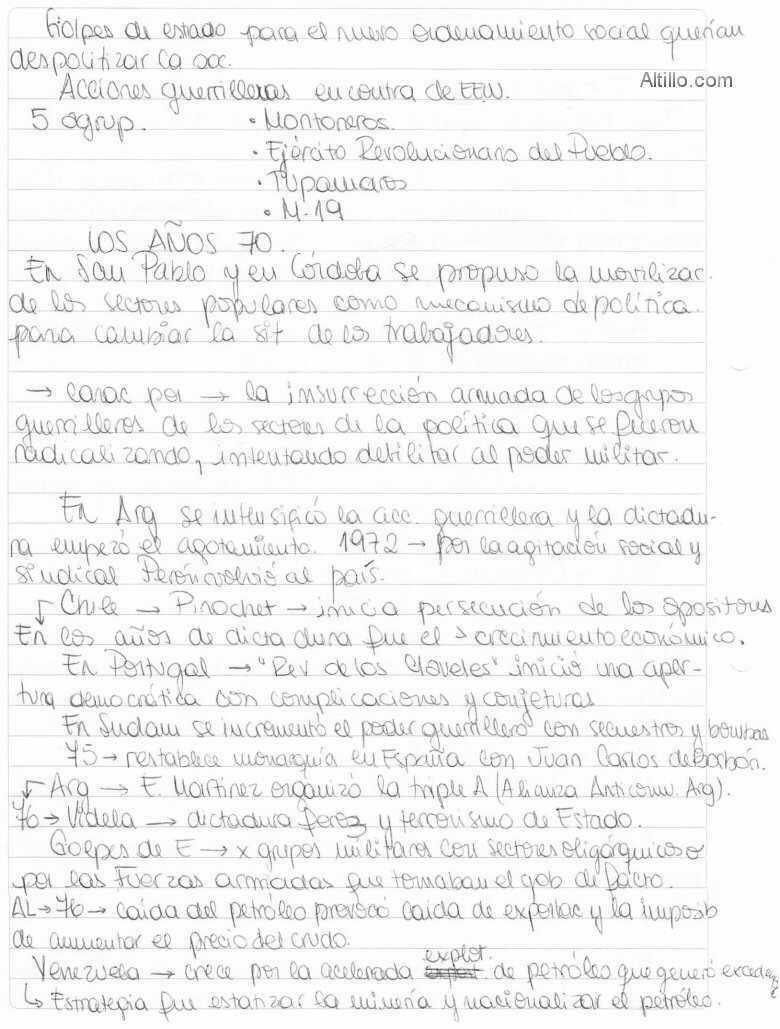 Golpes de estado para el nuevo ordenamiento social querían
despolitizar la acc.
Altillo.com
Acciones guerrilleras en contra de EEUU.
5 agrup. • Montoneros.
• Ejército Revolucionario del Pueblo.
• Tupamaros
• M-19
LOS AÑOS 70.
En San Pablo y en Córdoba se propuso la movilizac.
de los sectores populares como mecanismo de política
para cambiar la sit de los trabajadores.
→ carac por → la insurrección armada de los grupos
guerrilleros de los sectores de la política que se fueron
radicalizando, intentando debilitar al poder militar.
En Arg se intensificó la acc. guerrillera y la dictadu-
ra empezó el agotamiento. 1972 → por la agitación social y
sindical Perón volvió al país.
Chile → Pinochet → inicia persecución de los opositores
En los años de dictadura fue el > crecimiento económico.
En Portugal → "Rev de los Claveles" inició una aper-
tura democrática con complicaciones y conjeturas
En Sudam se incrementó el poder guerrillero con secuestros y bombas
75 → restablece monarquía en España con Juan Carlos de Borbón.
Arg → E. Martinez organizó la triple A (Alianza Anticomu. Arg).
76 → Videla → dictadura feroz y terrorismo de Estado.
Golpes de E → x grupos militares con sectores oligárquicos o
por las Fuerzas armadas que tomaban el gob de facto.
AL → 76 → caída del petróleo provocó caida de exportac y la imposib
de aumentar el precio del crudo.
Venezuela → crece por la acelerada explot. de petróleo que generó
↳ Estrategia fue estatizar la minería y nacionalizar el petróleo.